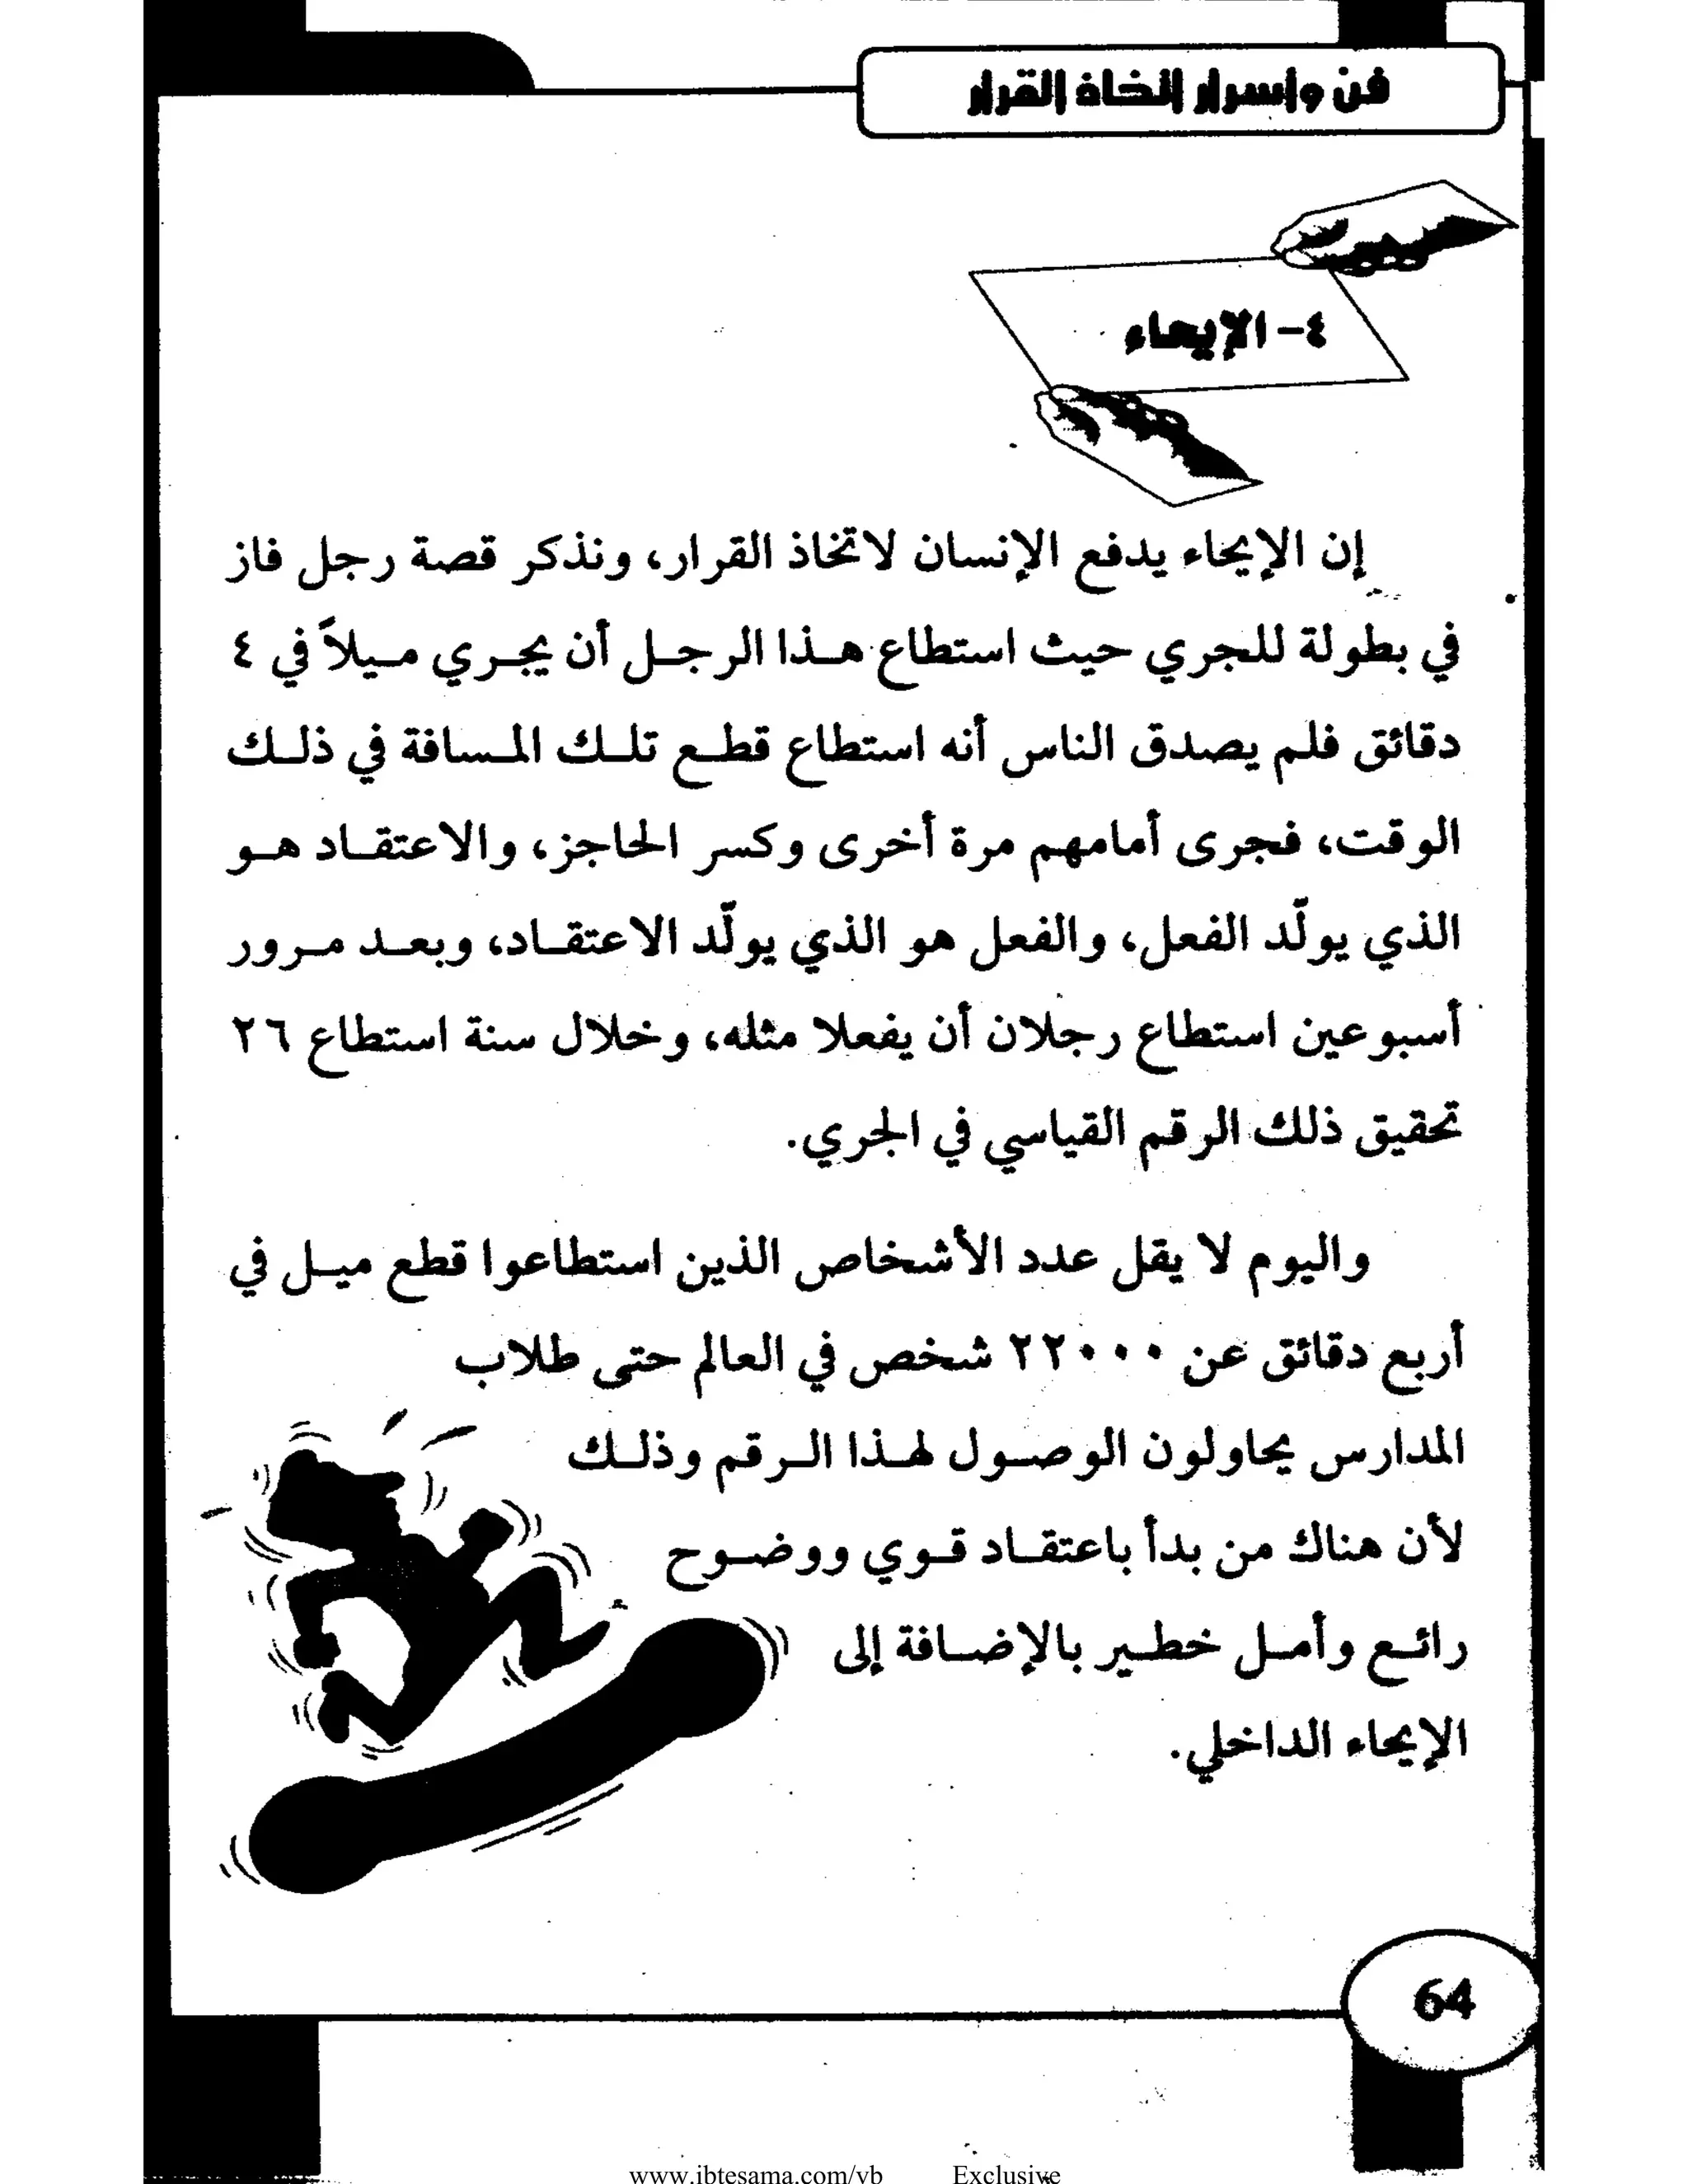 فن وأسرار اتخاذ القرار
٤- الإيحاء
إن الإيحاء يدفع الإنسان لاتخاذ القرار، ونذكر قصة رجل فاز
في بطولة للجري حيث استطاع هذا الرجل أن يجري ميلاً في ٤
دقائق فلم يصدق الناس أنه استطاع قطع تلك المسافة في ذلك
الوقت، فجرى أمامهم مرة أخرى وكسر الحاجز، والاعتقاد هو
الذي يولّد الفعل، والفعل هو الذي يولّد الاعتقاد، وبعد مرور
أسبوعين استطاع رجلان أن يفعلا مثله، وخلال سنة استطاع ٢٦
تحقيق ذلك الرقم القياسي في الجري.
واليوم لا يقل عدد الأشخاص الذين استطاعوا قطع ميل في
أربع دقائق عن ٢٢٠٠٠ شخص في العالم حتى طلاب
المدارس يحاولون الوصول لهذا الرقم وذلك
لأن هناك من بدأ باعتقاد قوي ووضوح
رائع وأمل خطير بالإضافة إلى
الإيحاء الداخلي.
64
www.ibtesama.com/vb Exclusive